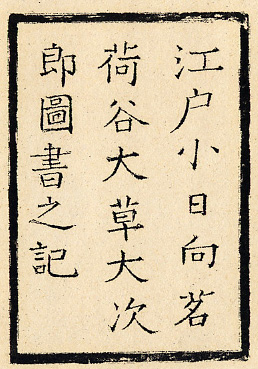 江戸小日向茗
荷谷大草大次
郎圖書之記